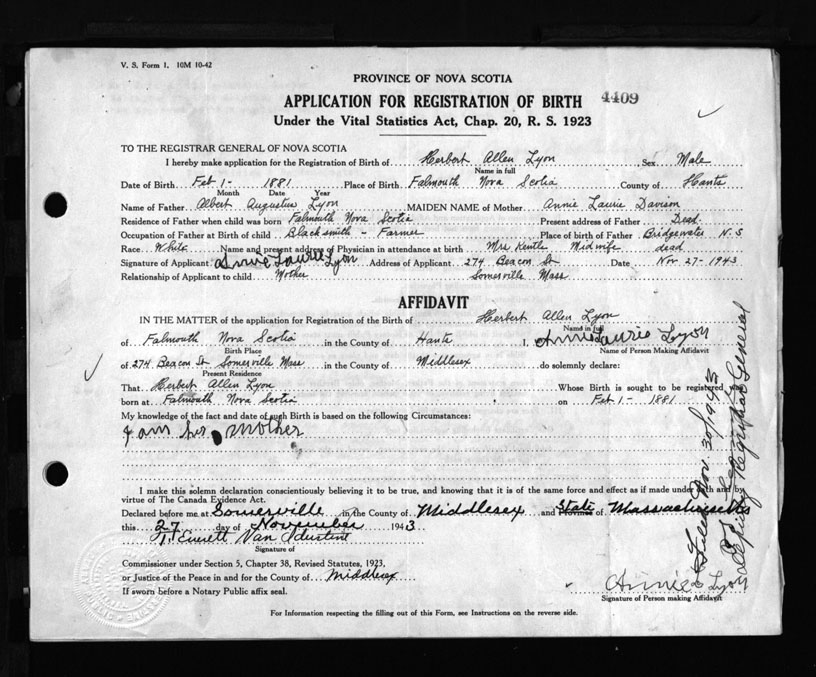 V. S. Form 1. 10M 10-42
PROVINCE OF NOVA SCOTIA
APPLICATION FOR REGISTRATION OF BIRTH 4409
Under the Vital Statistics Act, Chap. 20, R. S. 1923
TO THE REGISTRAR GENERAL OF NOVA SCOTIA
I hereby make application for the Registration of Birth of Herbert Allen Lyon Sex Male
Name in full
Date of Birth Feb 1 - 1881 Place of Birth Falmouth Nova Scotia County of Hants
Month Date Year
Name of Father Albert Augustus Lyon MAIDEN NAME of Mother Annie Laurie Davison
Residence of Father when child was born Falmouth Nova Scotia Present address of Father Dead.
Occupation of Father at Birth of child Blacksmith - Farmer Place of Birth of Father Bridgewater N.S
Race White Name and present address of Physician in attendance at birth Mrs Midwife dead
Signature of Applicant Annie Laurie Lyon Address of Applicant 274 Beacon St Date Nov 27-1943
Relationship of Applicant to child Mother Somerville Mass
AFFIDAVIT
IN THE MATTER of the application for Registration of the Birth of Herbert Allen Lyon
Name in full
of Falmouth Nova Scotia in the County of Hants I, Annie Laurie Lyon
Birth Place Name of Person Making Affidavit
of 274 Beacon St Somerville Mass in the County of Middlesex do solemnly declare:
Present Residence
That Herbert Allen Lyon Whose Birth is sought to be registered
born at Falmouth Nova Scotia on Feb 1 - 1881
My knowledge of the fact and date of such Birth is based on the following Circumstances:
I am his mother
I make this solemn declaration conscientiously believing it to be true, and knowing that it is of the same force and effect as if made under oath and by
virtue of The Canada Evidence Act.
Declared before me at Somerville in the County of Middlesex and State Province of Massachusetts
this 27 day of November 1943
Everett Van
Signature of
Commissioner under Section 5, Chapter 38, Revised Statutes, 1923,
or Justice of the Peace in and for the County of Middlesex
If sworn before a Notary Public affix seal.
Annie L Lyon
Signature of Person making Affidavit
For Information respecting the filling out of this Form, see Instructions on the reverse side.
Filed Nov. 30/1943
Deputy Registrar General